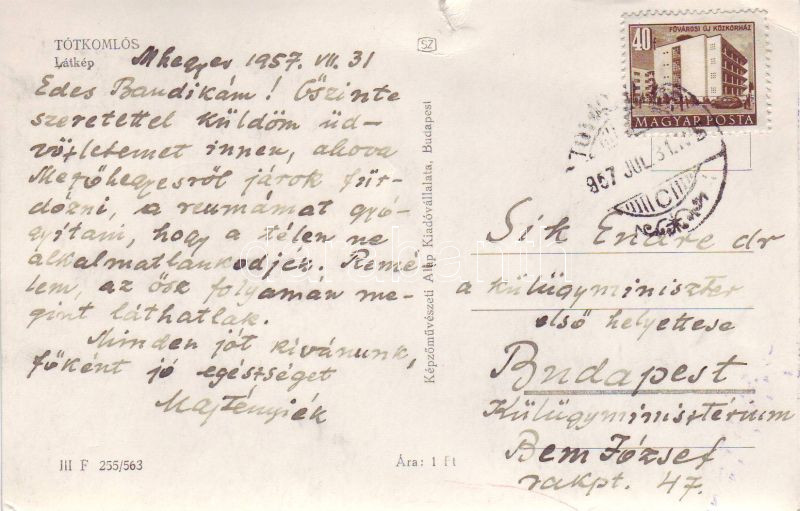 TÓTKOMLÓS
Látkép
Mhegyes 1957. VII. 31
Édes Bandikám! Őszinte
szeretettel küldöm üd-
vözletemet innen, ahova
Mezőhegyesről járok für-
dőzni, a reumámat gyó-
gyítani, hogy a télen ne
alkalmatlankodjék. Remé-
lem, az ősz folyamán me-
gint láthatlak.
Minden jót kívánunk,
főként jó egészséget
Majtényiék
III F 255/563
Ára: 1 Ft
SZ
Képzőművészeti Alap Kiadóvállalata, Budapest
40 f
FŐVÁROSI ÚJ KÖZKÓRHÁZ
MAGYAR POSTA
957 JUL. 31.
C
Sík Endre dr
a külügyminiszter
első helyettese
Budapest
Külügyminisztérium
Bem József
rakpt. 47.